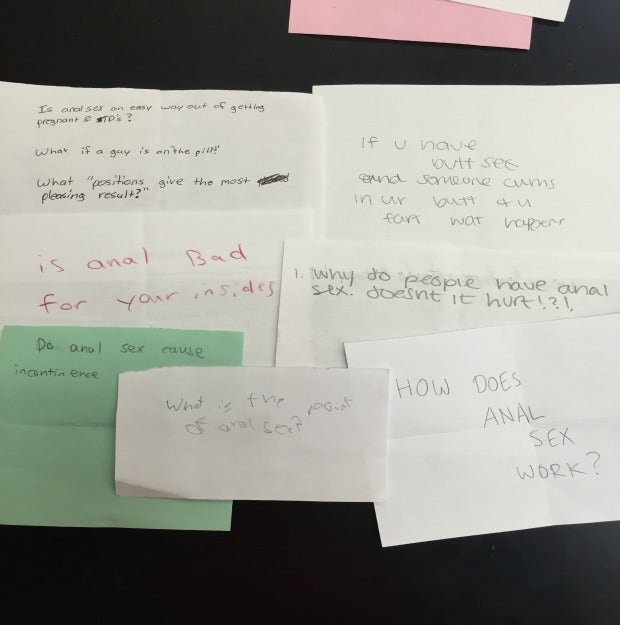 Is anal sex an easy way out of getting
pregnant & STD's?
What if a guy is on the pill?
What "positions give the most
pleasing result?"
If u have
butt sex
and someone cums
in ur butt & u
fart wat happens
is anal Bad
for your insides
1. Why do people have anal
sex. doesnt it hurt!?!
Do anal sex cause
incontinence
What is the point
of anal sex?
HOW DOES
ANAL
SEX
WORK?